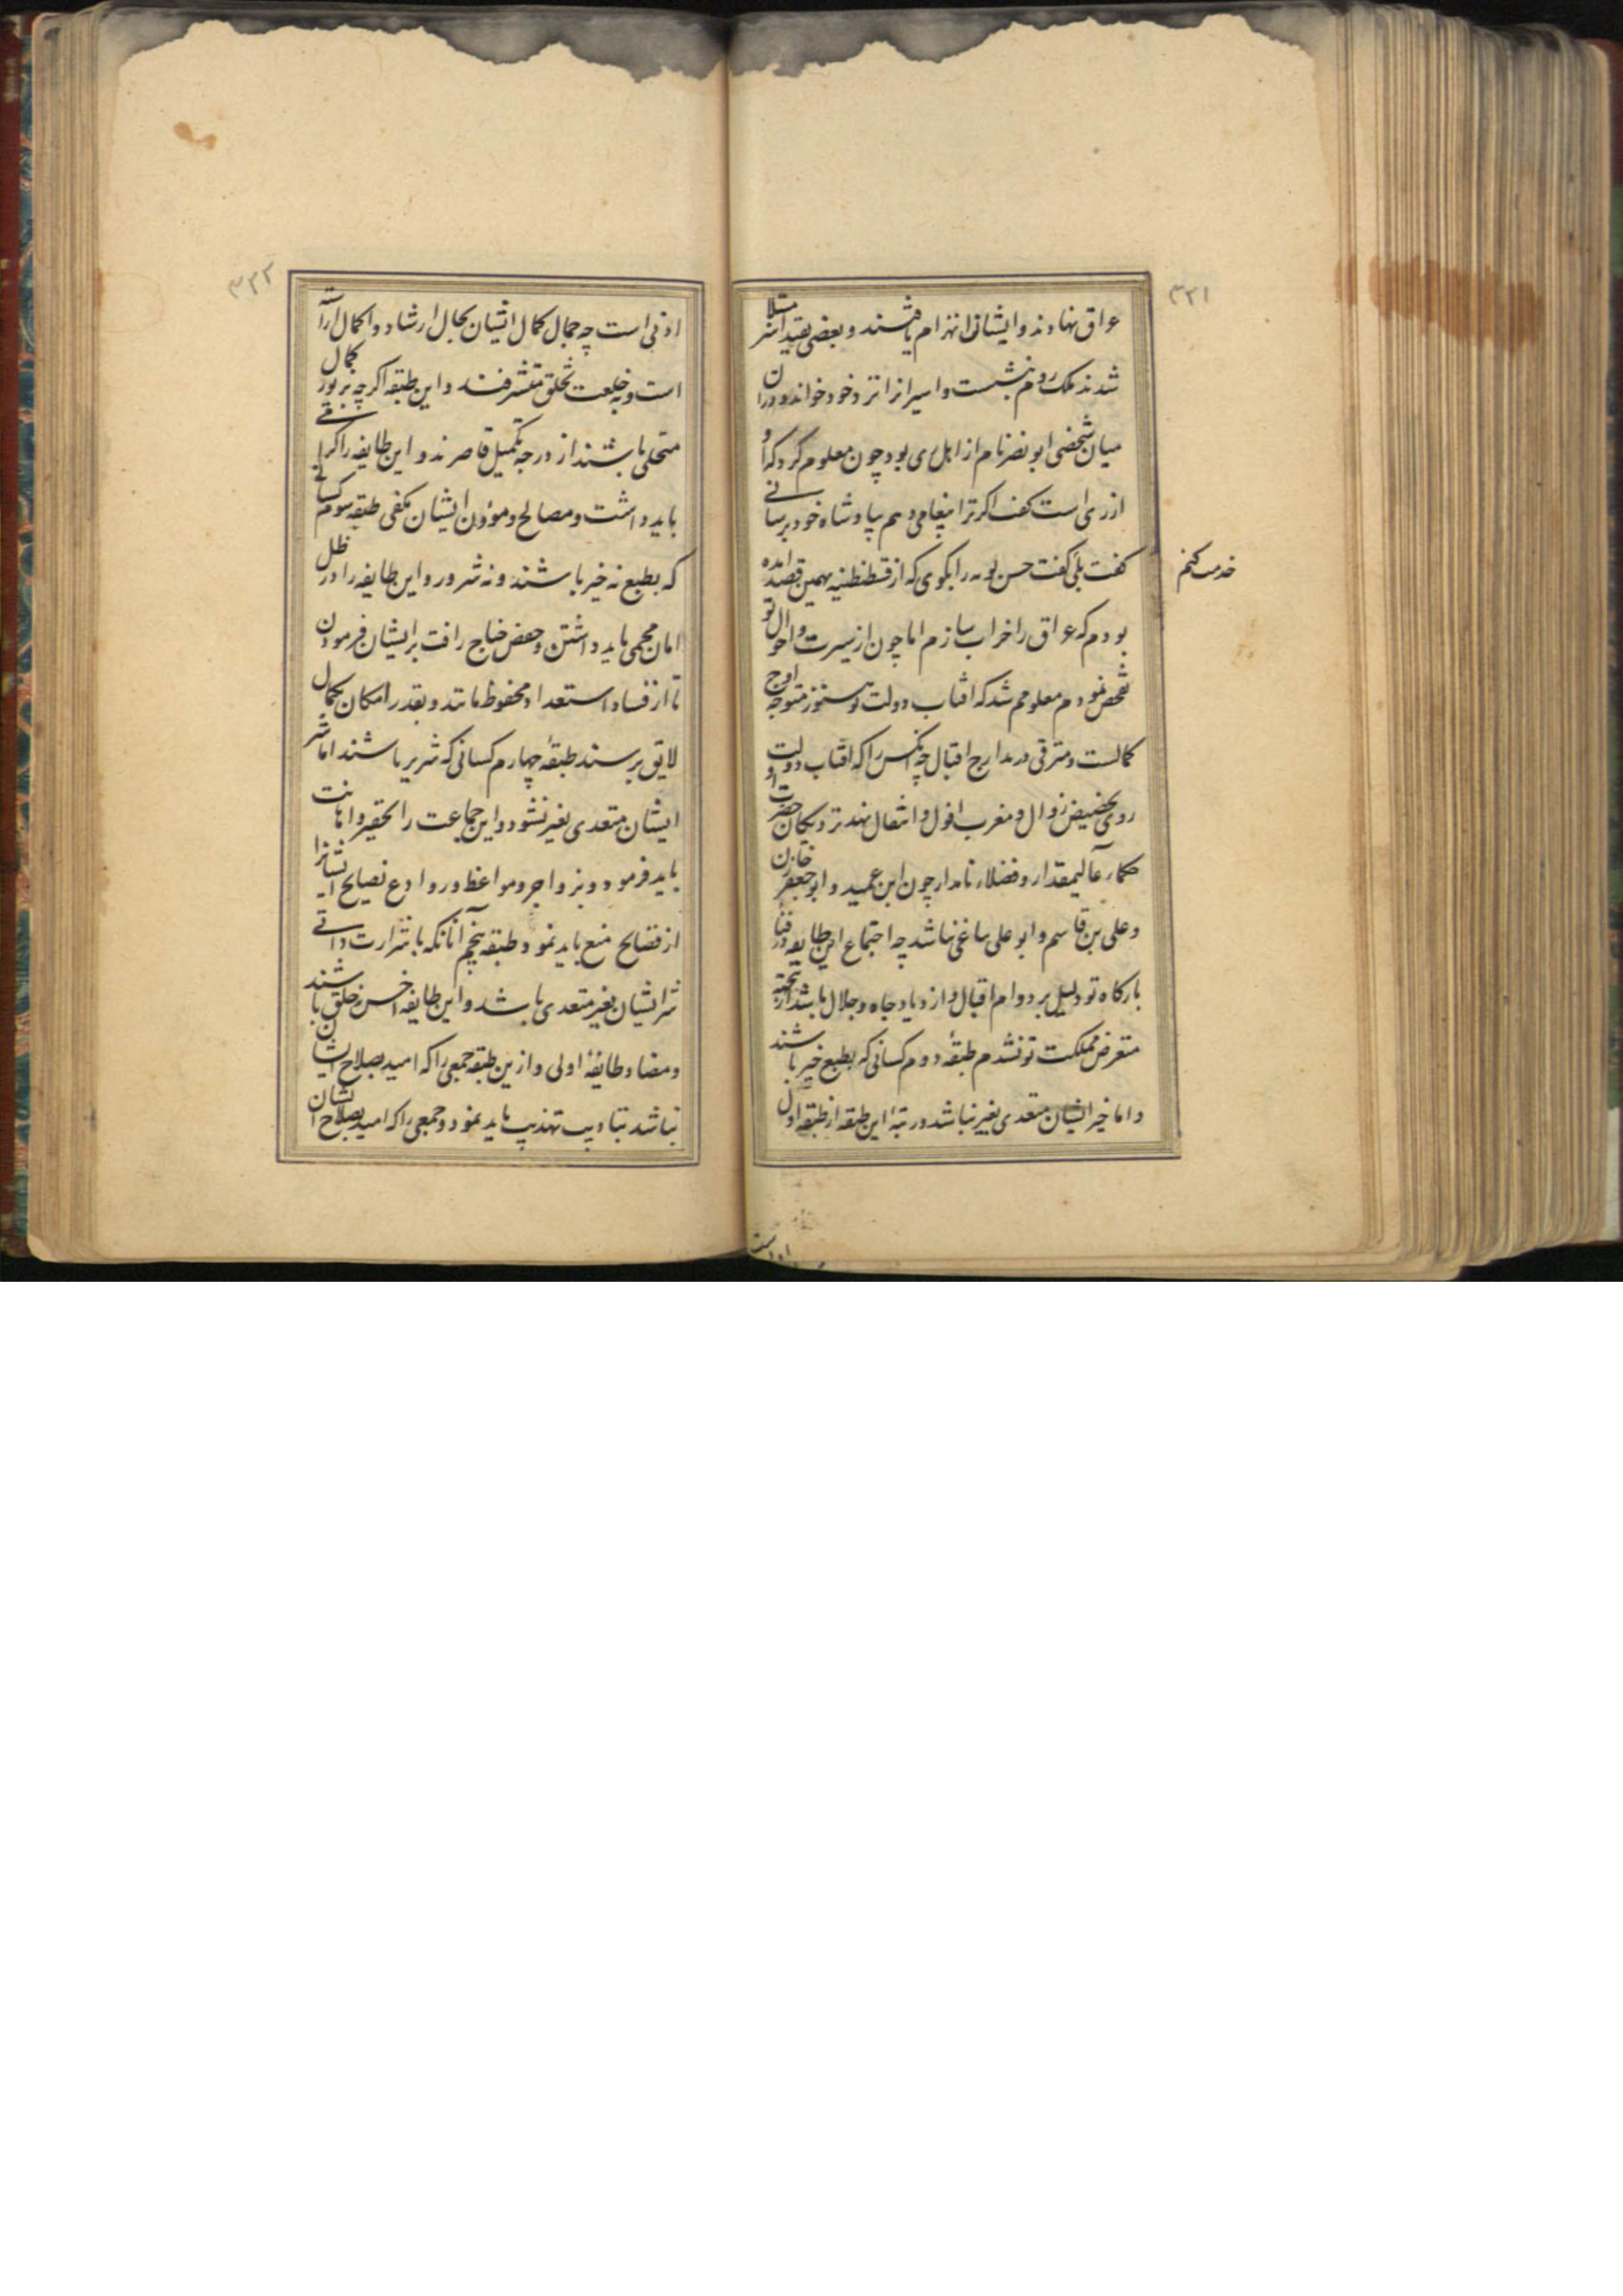 ۳۳۱
عراق نهادند و ایشان انهزام یافتند و بعضی بقید اسر مبتلا
شدند ملک روم بنشست و اسیرانرا نزد خود خواند و دران
میان شخصی ابو نصر نام از اهل ری بود چون معلوم کرد که او
از ری است کفت اکر ترا پیغامی دهم بپادشاه خود برسانی
کفت بلی کفت حسن بویه را بکوی که از قسطنطنیه بهمین قصد آمده
خدمت کنم
بودم که عراق را خراب سازم اما چون از سیرت و احوال تو
تفحص نمودم معلومم شد که افتاب دولت تو هنوز متوجه اوج
کمالست و مترقی در مدارج اقبال چه آنکس را که افتاب دولت او
روی بحضیض زوال و مغرب افول و انتقال نهد نزدیکان حضرت
حکماء عالیمقدار و فضلاء نامدار چون ابن عمید و ابو جعفر خازن
و علی بن قاسم و ابو علی بیاغی نباشد چه اجتماع این طایفه در فناء
بارکاه تو دلیل بر دوام اقبال و ازدیاد جاه و جلال باشد ازین جهت
متعرض مملکت تو نشدم طبقهٔ دوم کسانی که بطبع خیر باشند
و اما خیر ایشان متعدی بغیر نباشد و رتبهٔ این طبقه از طبقه اول
۳۳۲
ادنی است چه جمال کمال ایشان بحال ارشاد و اکمال آراسته
است و بخلعت تخلق متشرفند و این طبقه اکرچه بزیور کمال
متحلی باشند از درجه تکمیل قاصرند و این طایفه را کرامی
باید داشت و مصالح و مؤون ایشان مکفی طبقه سوم کسانی
که بطبع نه خیر باشند و نه شرور و این طایفه را در ظل
امان محمی باید داشتن و خفض جناح رافت بر ایشان فرمودن
تا از فساد استعداد محفوظ مانند و بقدر امکان بکمال
لایق برسند طبقهٔ چهارم کسانی که شریر باشند اما شر
ایشان متعدی بغیر نشود و این جماعت را تحقیر و اهانت
باید فرمود و بزواجر و مواعظ و روادع نصایح ایشانرا
از فضایح منع باید نمود طبقه پنجم آنانکه با شرارت ذاتی
شر ایشان بغیر متعدی باشد و این طایفه اخس خلق باشند
و مضاد طایفهٔ اولی و ازین طبقه جمعی را که امید بصلاح ایشان
نباشد بتادیب تهذیب باید نمود و جمعی را که امید بصلاح ایشان